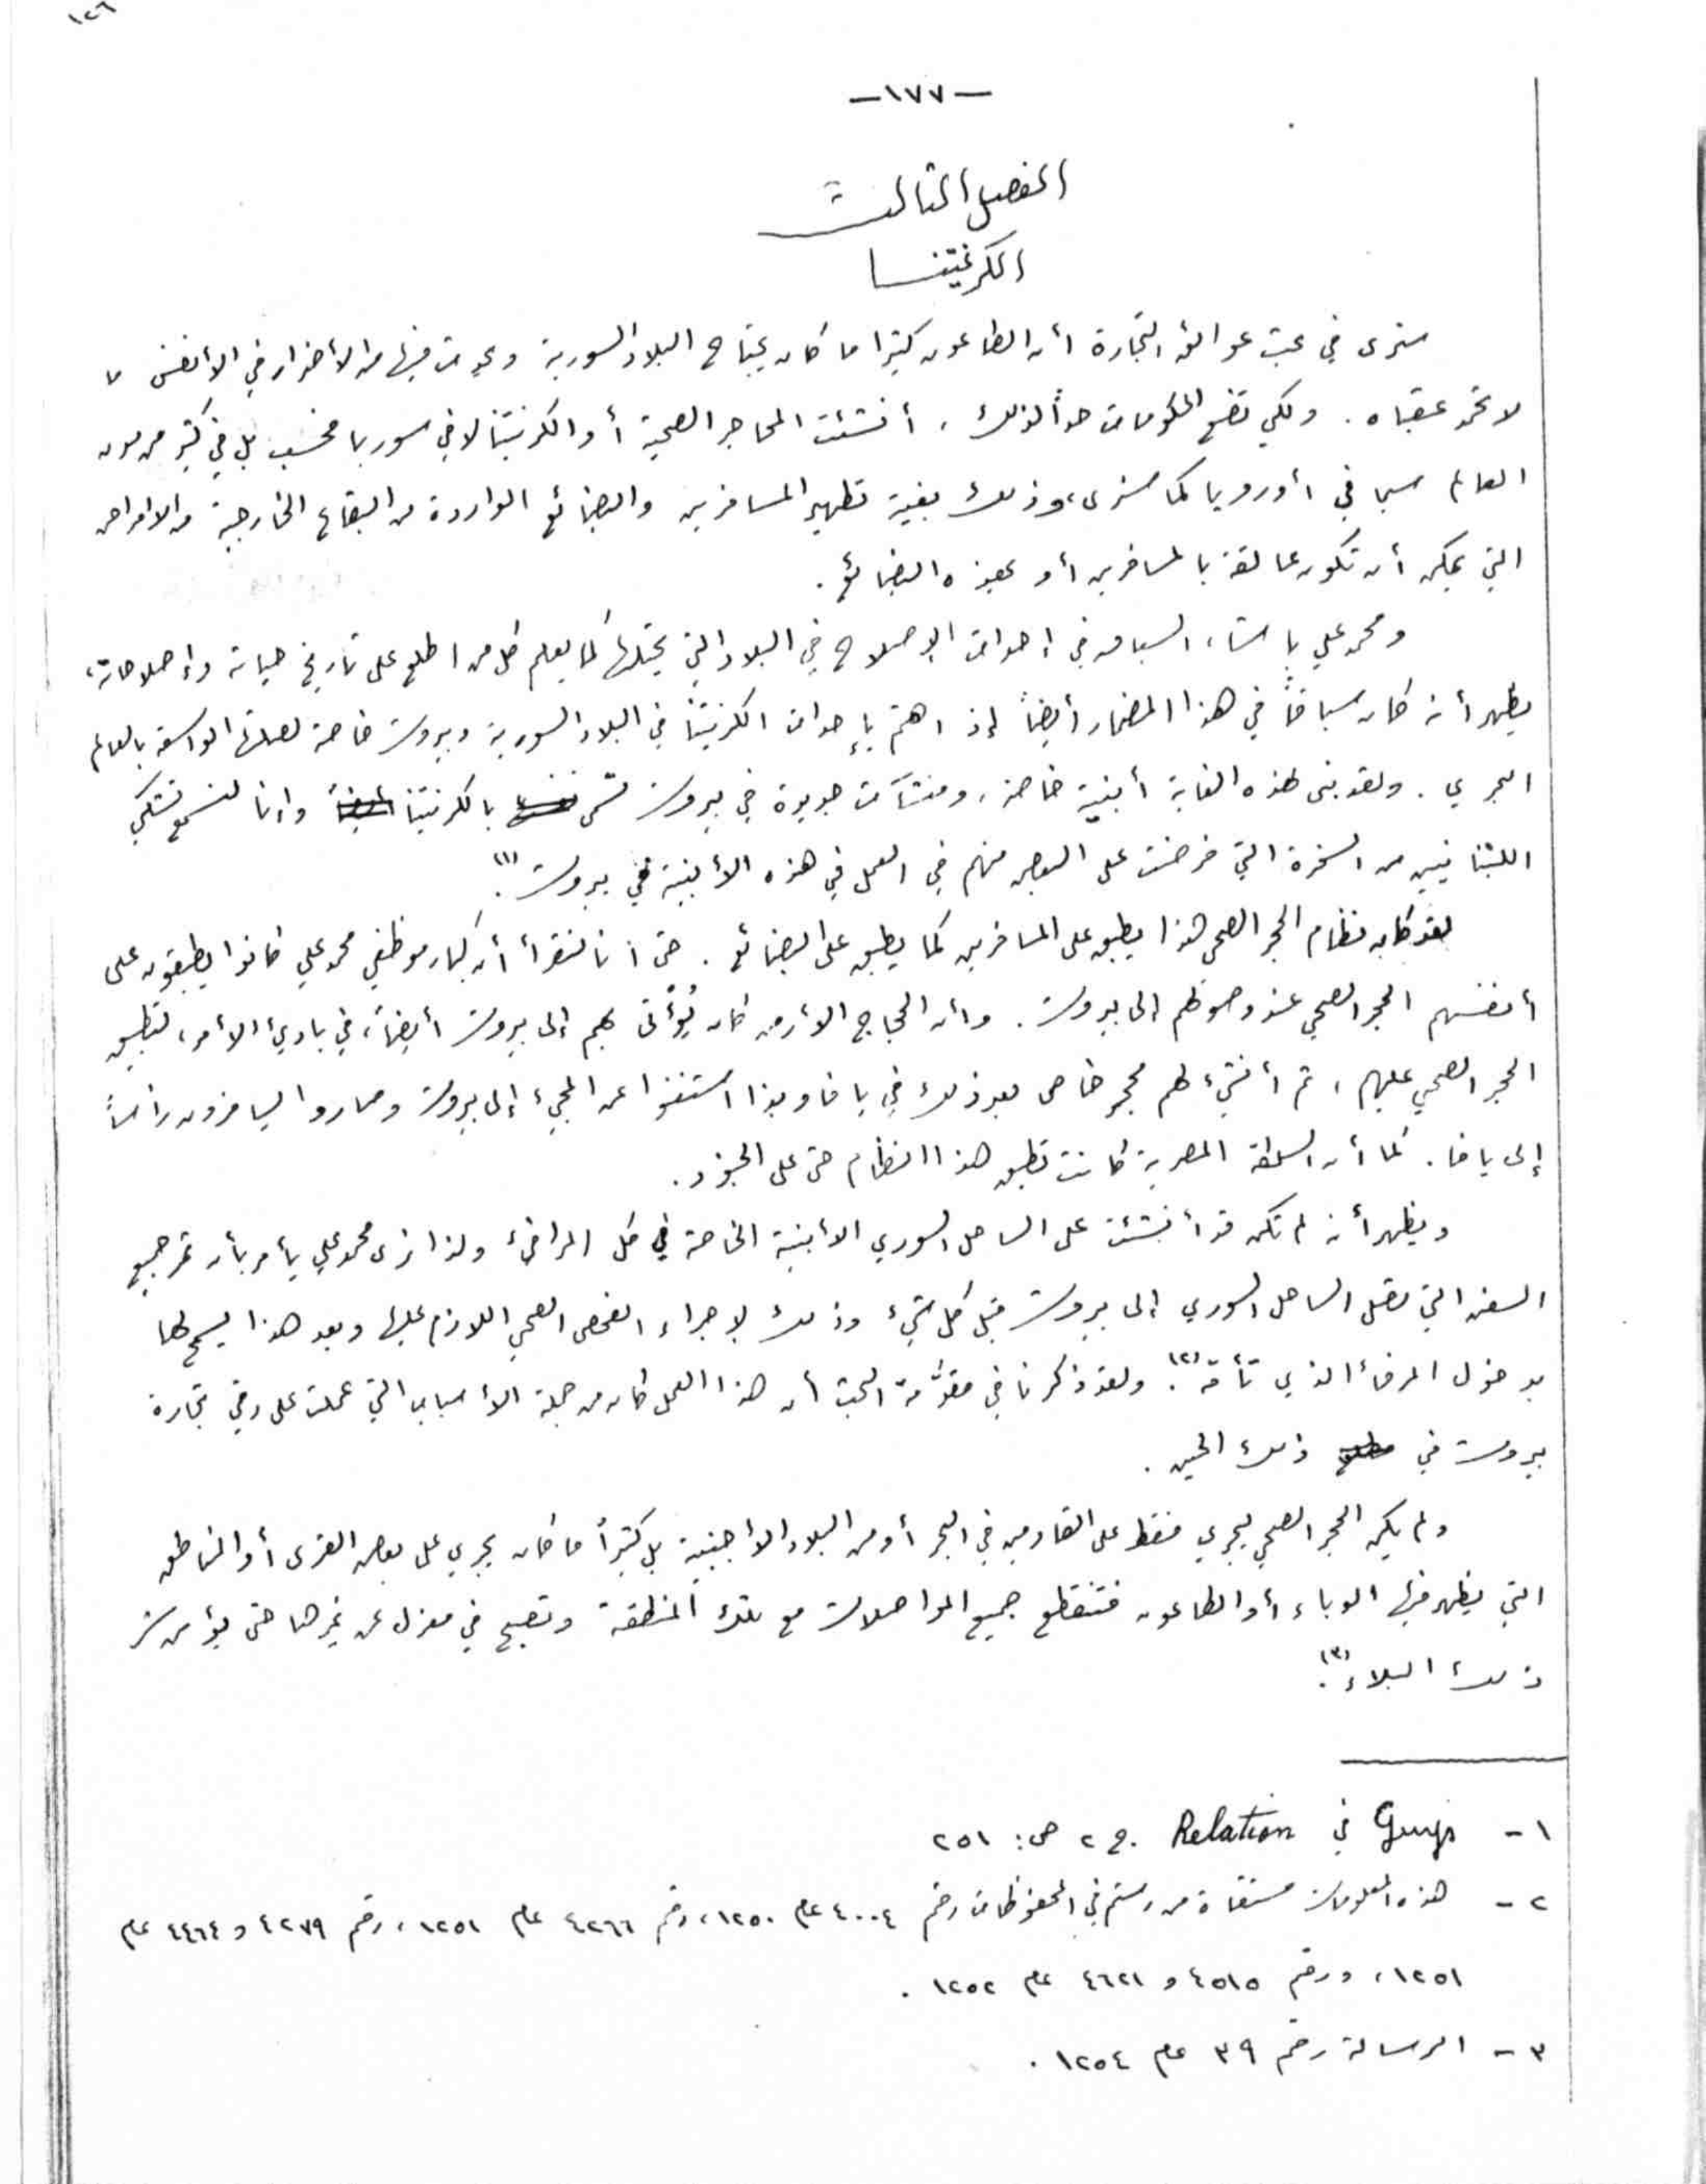 ١٢٦
-١٧٧-
الفصل الثالث
الكرنتينا
سنرى في بحث عوائق التجارة أن الطاعون كثيرا ما كان يجتاح البلاد السورية ويحدث فيها من الأضرار في الأنفس ما
لا تحمد عقباه. ولكي تضع الحكومات حداً لذلك، أنشئت المحاجر الصحية أو الكرنتينا لا في سوريا فحسب بل في كثير من مدن
العالم سيما في أوروبا كما سنرى، وذلك بغية تطهير المسافرين والبضائع الواردة من البقاع الخارجية من الامراض
التي يمكن أن تكون عالقة بالمسافرين أو بهذه البضائع.
ومحمد علي باشا، السباق في إحداث الإصلاح في البلاد التي يحتلها كما يعلم كل من اطلع على تاريخ حياته وإصلاحاته،
يظهر أنه كان سباقاً في هذا المضمار أيضاً إذ اهتم بإحداث الكرنتينا في البلاد السورية وبيروت خاصة لصلتها الواسعة بالعالم
البحري. ولقد بنى لهذه الغاية أبنية خاصة، ومنشآت جديدة في بيروت تسمى بالكرنتينا وإنا لنسمع تشكي
اللبنانيين من السخرة التي فرضت على البعض منهم في العمل في هذه الأبنية في بيروت (١).
لقد كان نظام الحجر الصحي هذا يطبق على المسافرين كما يطبق على البضائع. حتى اننا لنقرأ أن كبار موظفي محمد علي كانوا يطبقون على
أنفسهم الحجر الصحي عند وصولهم إلى بيروت. وأن الحجاج الأرمن كان يُؤتى بهم إلى بيروت أيضاً، في بادئ الأمر، لتطبيق
الحجر الصحي عليهم، ثم أنشئ لهم محجر خاص بعد ذلك في يافا وبذا استغنوا عن المجيء إلى بيروت وصاروا يسافرون رأساً
إلى يافا. كما أن السلطة المصرية كانت تطبق هذا النظام حتى على الجنود.
ويظهر أنه لم تكن قد أنشئت على الساحل السوري الأبنية الخاصة في كل المرافئ ولذا نرى محمد علي يأمر بأن تمر جميع
السفن التي تصل الساحل السوري إلى بيروت قبل كل شيء وذلك لإجراء الفحص الصحي اللازم عليها وبعد هذا يسمح لها
بدخول المرفأ الذي تأمه (٢). ولقد ذكرنا في مقدّمة البحث أن هذا العمل كان من جملة الأسباب التي عملت على رقي تجارة
بيروت في ذلك الحين.
ولم يكن الحجر الصحي يجري فقط على القادمين في البحر أو من البلاد الأجنبية بل كثيراً ما كان يجري على بعض القرى أو المناطق
التي يظهر فيها الوباء أو الطاعون فتنقطع جميع المواصلات مع تلك المنطقة وتصبح في معزل عن غيرها حتى يؤمن شر
ذلك البلاء (٣).
١- Guys في Relation ج. ٢ ص: ٢٥١
٢- هذه المعلومات مستقاة من رستم في المحفوظات رقم ٤٠٠٤ عام ١٢٥٠، رقم ٤٢٦٦ عام ١٢٥١، رقم ٤٢٧٩ و ٤٤٦٤ عام
١٢٥١، ورقم ٤٥١٥ و ٤٦٢١ عام ١٢٥٢.
٣- الرسالة رقم ٣٩ عام ١٢٥٤.